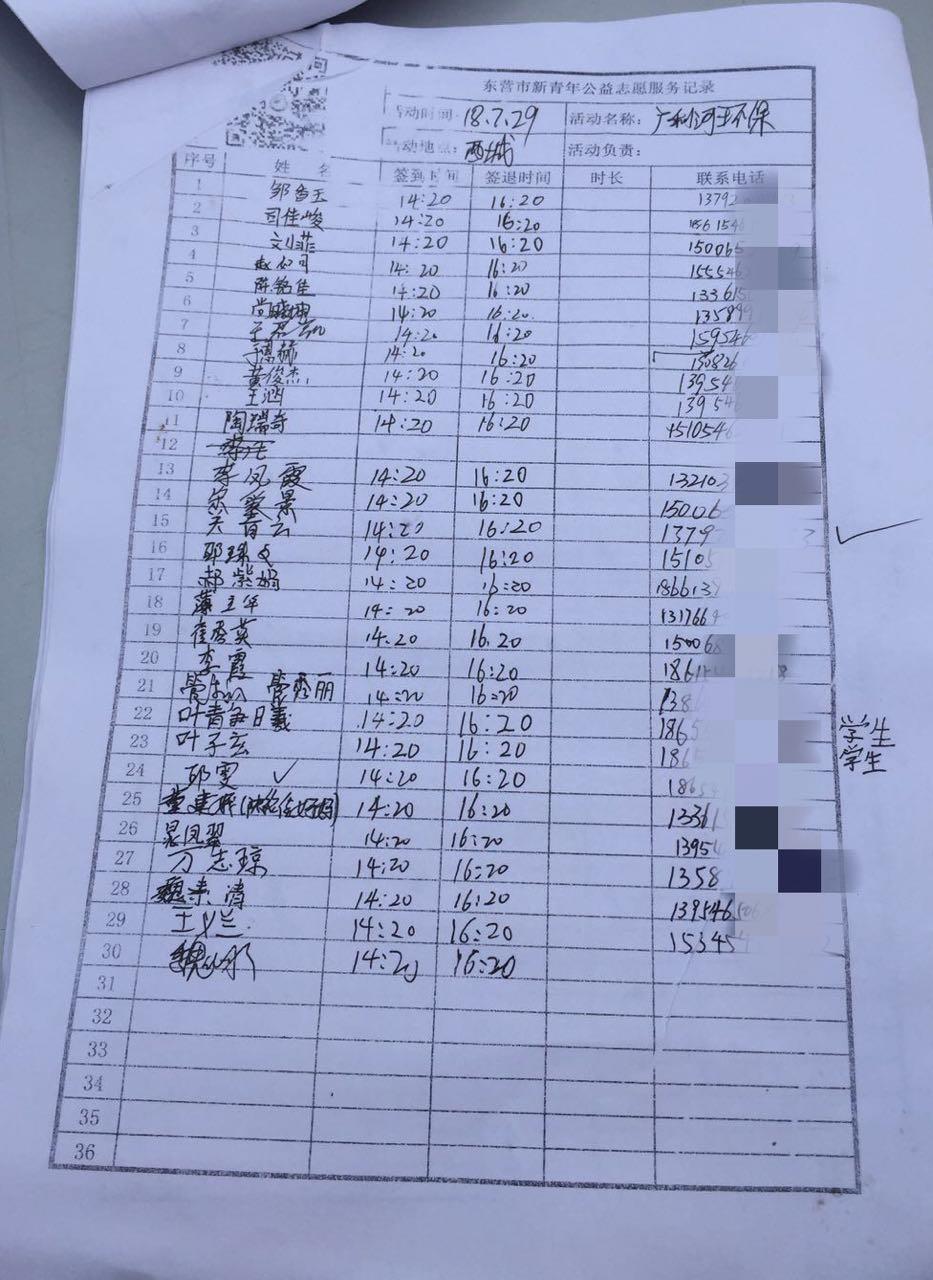 东营市新青年公益志愿服务记录
活动时间: 18.7.29 活动名称: 广利河王环保
活动地点: 西城 活动负责:
序号 姓名 签到时间 签退时间 时长 联系电话
1 邹香玉 14:20 16:20 1379
2 司佳峻 14:20 16:20 1861546
3 刘菲 14:20 16:20 150065
4 14:20 16:20 155546
5 陈铭佳 14:20 16:20 133615
6 尚晓坤 14:20 16:20 135899
7 14:20 16:20 159546
8 14:20 16:20 130826
9 黄俊杰 14:20 16:20 13954
10 王涵 14:20 16:20 139546
11 陶瑞奇 14:20 16:20 1510546
12
13 李凤霞 14:20 16:20 13210
14 14:20 16:20 150066
15 14:20 16:20 1379
16 14:20 16:20 15105
17 郝紫娟 14:20 16:20 186613
18 薄立华 14:20 16:20 131766
19 崔秀英 14:20 16:20 150068
20 李霞 14:20 16:20 1861
21 14:20 16:20 138
22 叶青 14:20 16:20 1865 学生
23 叶子玄 14:20 16:20 186 学生
24 邱雯 ✓ 14:20 16:20 1865
25 14:20 16:20 13361
26 晁凤翠 14:20 16:20 13954
27 万志琼 14:20 16:20 1358
28 魏来清 14:20 16:20 139546
29 王义兰 14:20 16:20 15345
30 14:20 16:20
31
32
33
34
35
36